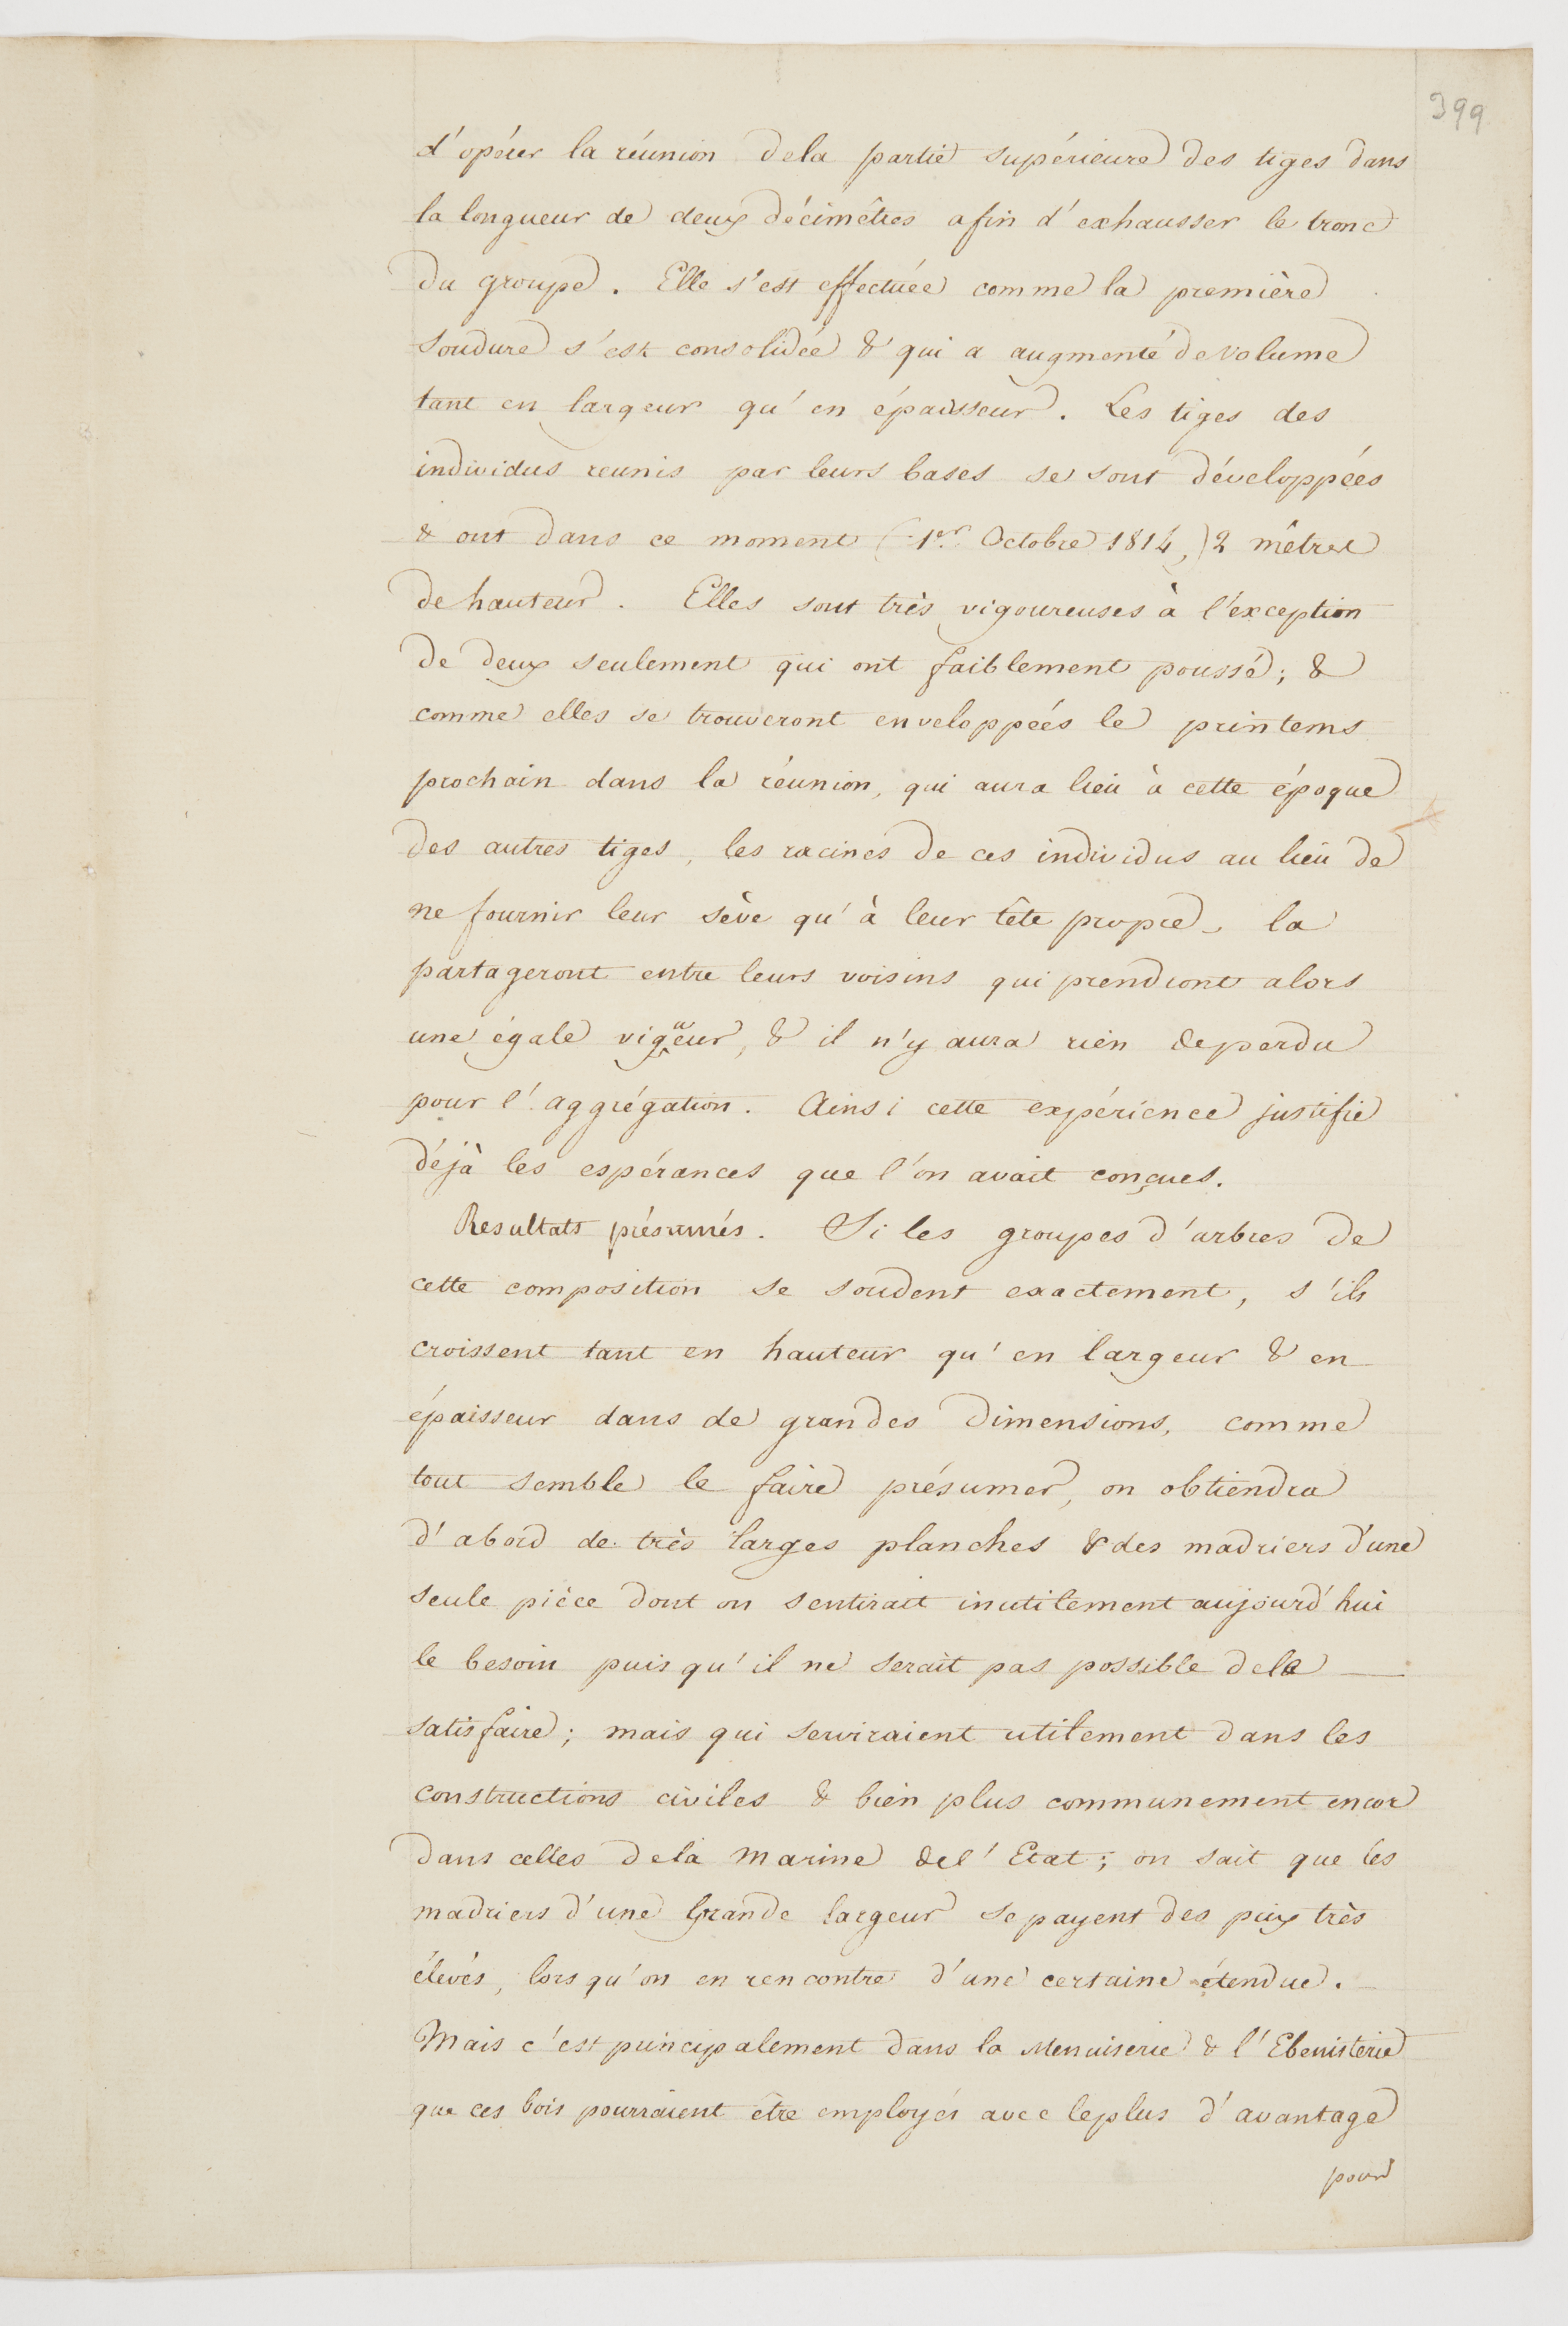 399
d'opérer la réunion dela partie supérieure des tiges dans
la longueur de deux décimêtres afin d'exhausser le tronc
du groupe. Elle s'est effectuée comme la première
soudure s'est consolidée & qui a augmenté de volume
tant en largeur qu'en épaisseur. Les tiges des
individus reunis par leurs bases se sont développées
& ont dans ce moment (1er. Octobre 1814,) 2 mêtres
de hauteur. Elles sont très vigoureuses à l'exception
de deux seulement qui ont faiblement poussé; &
comme elles se trouveront enveloppées le printems
prochain dans la réunion, qui aura lieu à cette époque
des autres tiges, les racines de ces individus au lieu de
ne fournir leur sève qu'à leur tête propre, la
partageront entre leurs voisins qui prendront alors
une égale vigueur, & il n'y aura rien de perdu
pour l'aggrégation. Ainsi cette expérience justifie
déjà les espérances que l'on avait conçues.
Resultats présumés. Si les groupes d'arbres de
cette composition se soudent exactement, s'ils
croissent tant en hauteur qu'en largeur & en
épaisseur dans de grandes dimensions, comme
tout semble le faire présumer, on obtiendra
d'abord de très larges planches & des madriers d'une
seule pièce dont on sentirait inutilement aujourd'hui
le besoin puis qu'il ne serait pas possible dele
satisfaire; mais qui serviraient utilement dans les
constructions civiles & bien plus communement encor
dans celles dela marine del'Etat; on sait que les
madriers d'une Grande largeur se payent des prix très
élevés, lors qu'on en rencontre d'une certaine étendue.
Mais c'est principalement dans la Menuiserie & l'Ebenisterie
que ces bois pourraient être employés avec leplus d'avantage
pour